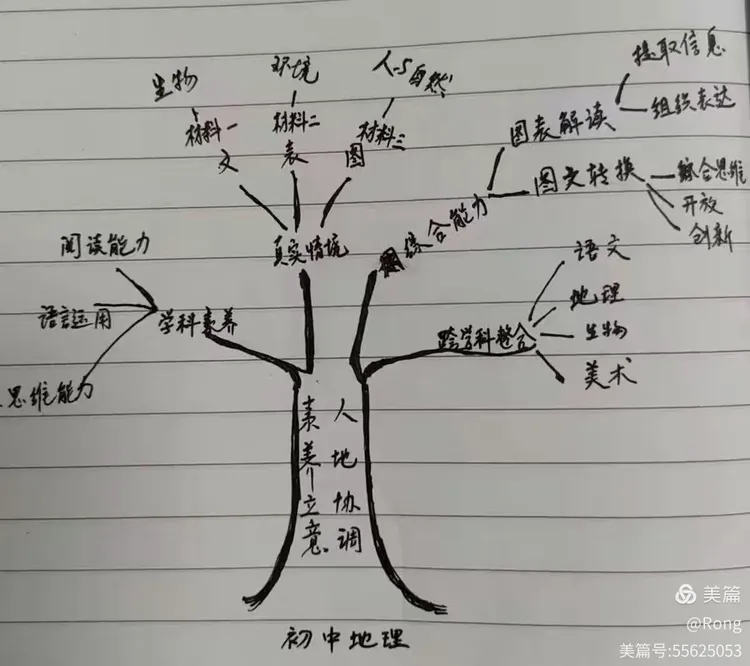 提取信息
组织表达
图表解读
生物
环境
人与自然
材料一
材料二
材料三
文
表
图
图文转换
综合思维
开放
创新
综合能力
真实情境
阅读能力
语言运用
思维能力
学科素养
跨学科整合
语文
地理
生物
美术
人地协调
素养立意
初中地理
美篇
@Rong
美篇号:55625053